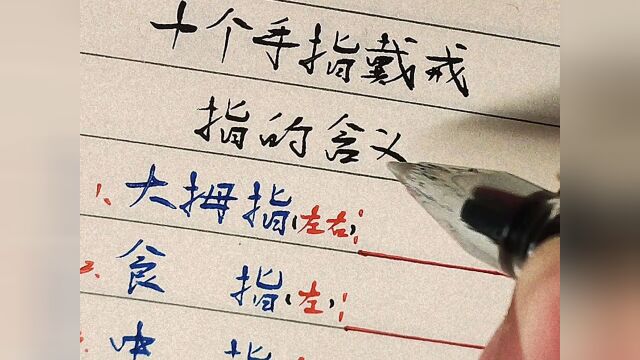 十个手指戴戒
指的含义
1、大拇指(左右):
2.食 指(左):
中 指(